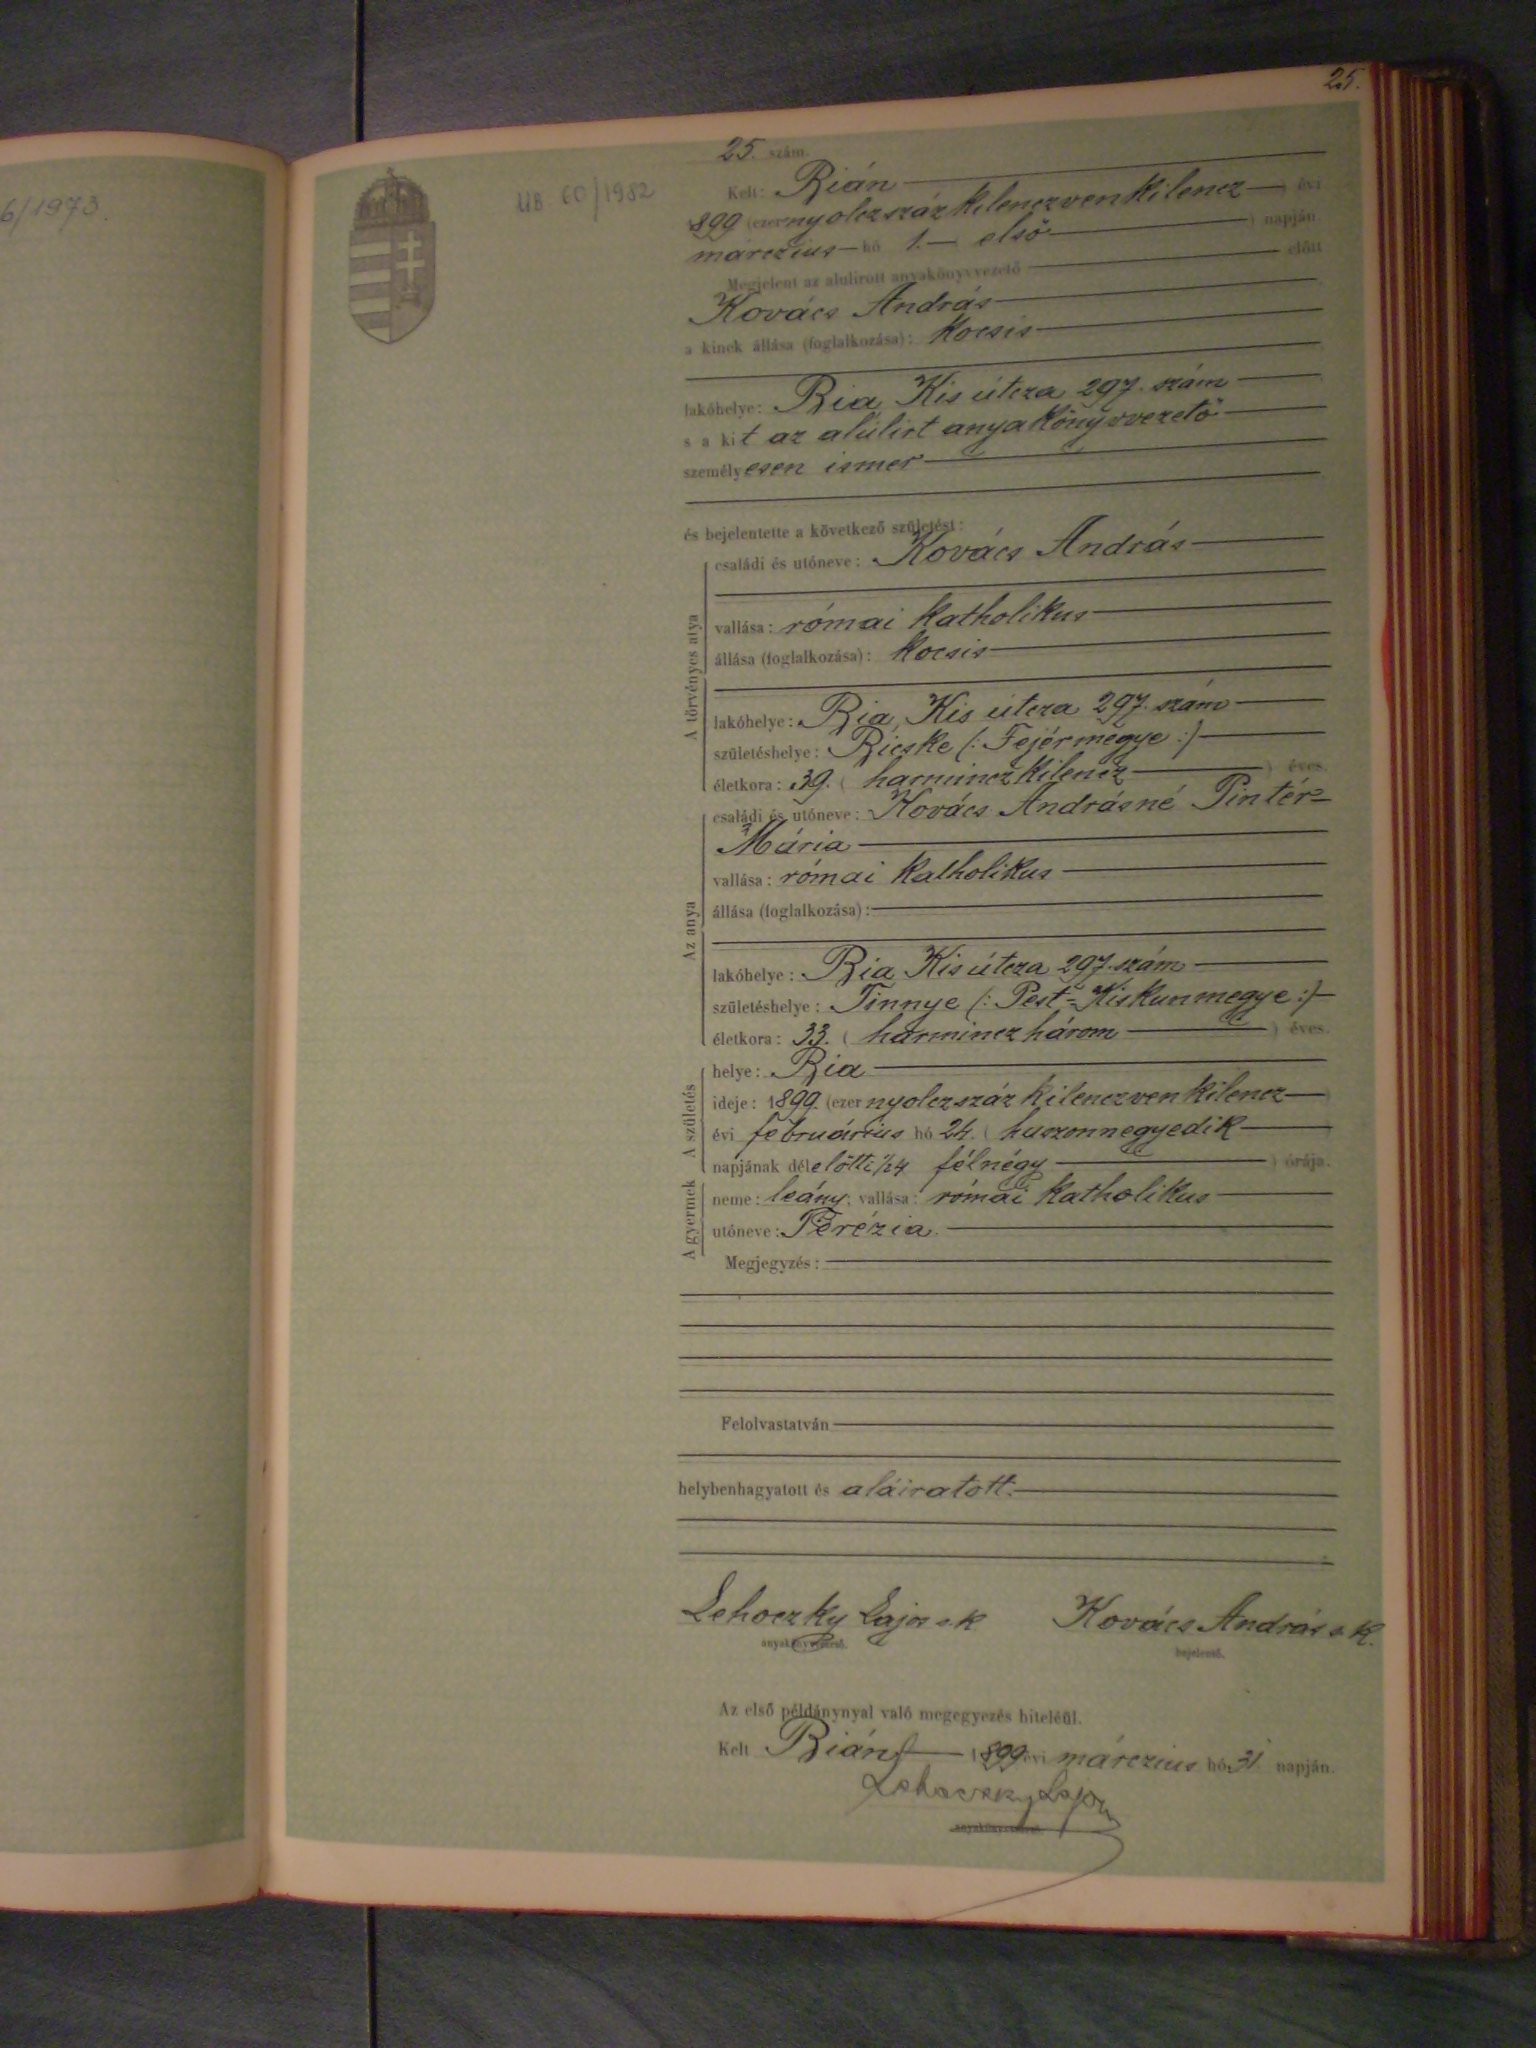 25.
6/1973.
UB 60/1982
25. szám.
Kelt: Bián
899 (ezernyolczszáz kilenczven kilencz ) évi
márczius hó 1. ( első ) napján.
Megjelent az alulirott anyakönyvvezető előtt
Kovács András
a kinek állása (foglalkozása): kocsis
lakóhelye: Bia Kis útcza 297. szám
s a kit az alúlirt anyakönyvvezető
személyesen ismer
és bejelentette a következő születést:
A törvényes atya
családi és utóneve: Kovács András
vallása: római katholikus
állása (foglalkozása): kocsis
lakóhelye: Bia, Kis útcza 297. szám
születéshelye: Bicske (: Fejérmegye :)
életkora: 39. ( harmincz kilencz ) éves.
Az anya
családi és utóneve: Kovács Andrásné Pintér
Mária
vallása: római katholikus
állása (foglalkozása):
lakóhelye: Bia Kis útcza 297. szám
születéshelye: Tinnye (: Pest-Kiskunmegye :)
életkora: 33. ( harmincz három ) éves.
A születés
helye: Bia
ideje: 1899. (ezer nyolczszáz kilenczven kilencz )
évi februárius hó 24. ( huszonnegyedik
napjának délelőtti ½4 félnégy ) órája.
A gyermek
neme: leány; vallása: római katholikus
utóneve: Terézia.
Megjegyzés:
Felolvastatván
helybenhagyatott és aláiratott.
Lehoczky Lajos s k Kovács András s. k.
anyakönyvvezető. bejelentő.
Az első példánynyal való megegyezés hiteléül.
Kelt Bián 1899 évi márczius hó 31 napján.
Lehoczky Lajos
anyakönyvvezető.